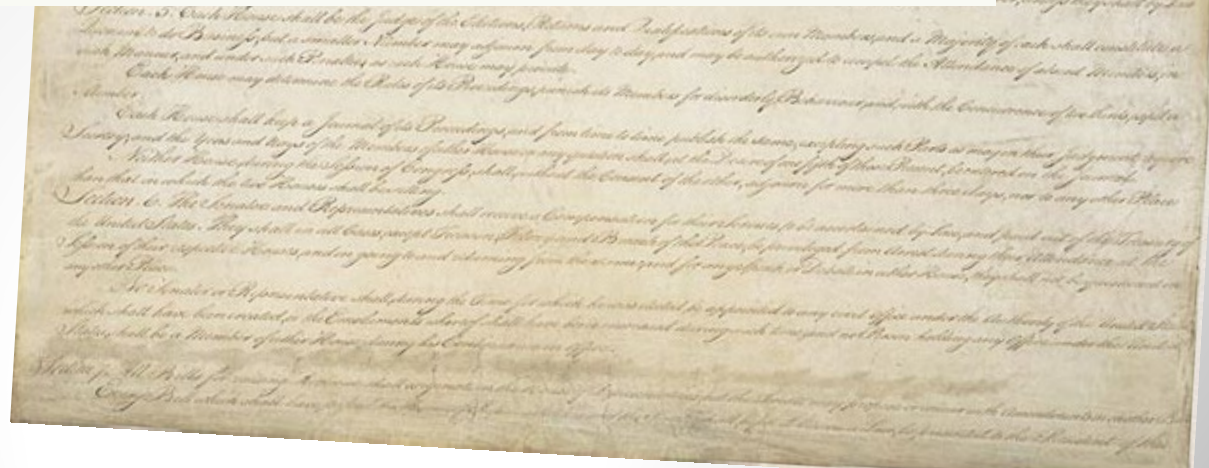 Section. 5. Each House shall be the Judge of the Elections, Returns and Qualifications of its own Members, and a Majority of each shall constitute a
Quorum to do Business; but a smaller Number may adjourn from day to day, and may be authorized to compel the Attendance of absent Members, in
such Manner, and under such Penalties as each House may provide.
Each House may determine the Rules of its Proceedings, punish its Members for disorderly Behaviour, and, with the Concurrence of two thirds, expel a
Member.
Each House shall keep a Journal of its Proceedings, and from time to time publish the same, excepting such Parts as may in their Judgment require
Secrecy; and the Yeas and Nays of the Members of either House on any question shall, at the Desire of one fifth of those Present, be entered on the Journal.
Neither House, during the Session of Congress, shall, without the Consent of the other, adjourn for more than three days, nor to any other Place
than that in which the two Houses shall be sitting.
Section. 6. The Senators and Representatives shall receive a Compensation for their Services, to be ascertained by Law, and paid out of the Treasury of
the United States. They shall in all Cases, except Treason, Felony and Breach of the Peace, be privileged from Arrest during their Attendance at the
Session of their respective Houses, and in going to and returning from the same; and for any Speech or Debate in either House, they shall not be questioned in
any other Place.
No Senator or Representative shall, during the Time for which he was elected, be appointed to any civil Office under the Authority of the United States,
which shall have been created, or the Emoluments whereof shall have been encreased during such time; and no Person holding any Office under the United
States, shall be a Member of either House during his Continuance in Office.
Section. 7. All Bills for raising Revenue shall originate in the House of Representatives; but the Senate may propose or concur with Amendments as on other Bills.
Every Bill which shall have passed the House of Representatives and the Senate, shall, before it become a Law, be presented to the President of the